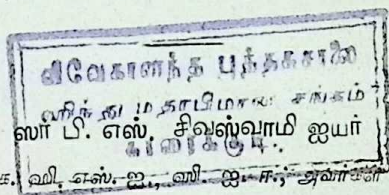 விவேகானந்த புத்தகசாலை
ஹிந்து மதாபிமான சங்கம்
ஸர் பி. எஸ். சிவஸ்வாமி ஐயர்
காரைக்குடி.
க. ஸி. எஸ். ஐ., ஸி. ஐ. ஈ., அவர்கள்